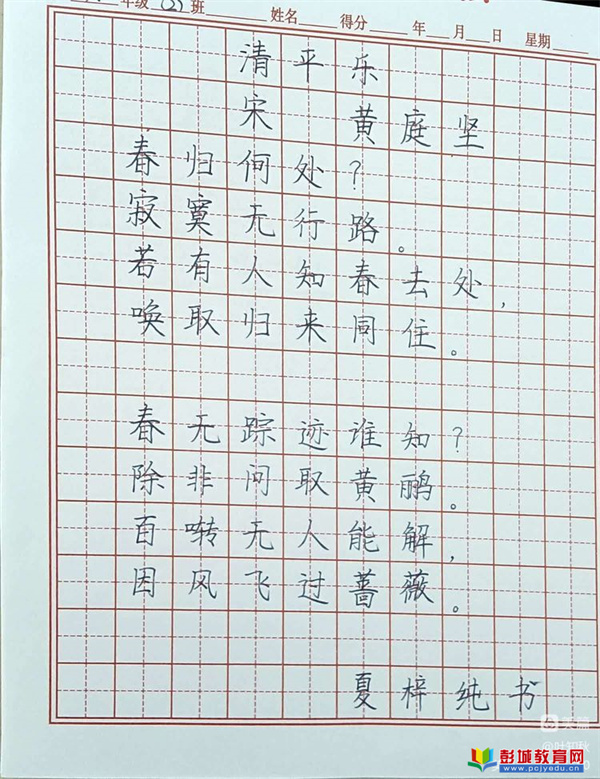 年级(2)班 姓名 得分 年 月 日 星期
清平乐
宋 黄庭坚
春归何处?
寂寞无行路。
若有人知春去处,
唤取归来同住。
春无踪迹谁知?
除非问取黄鹂。
百啭无人能解,
因风飞过蔷薇。
夏梓纯书
彭城教育网
www.pcjyedu.cn